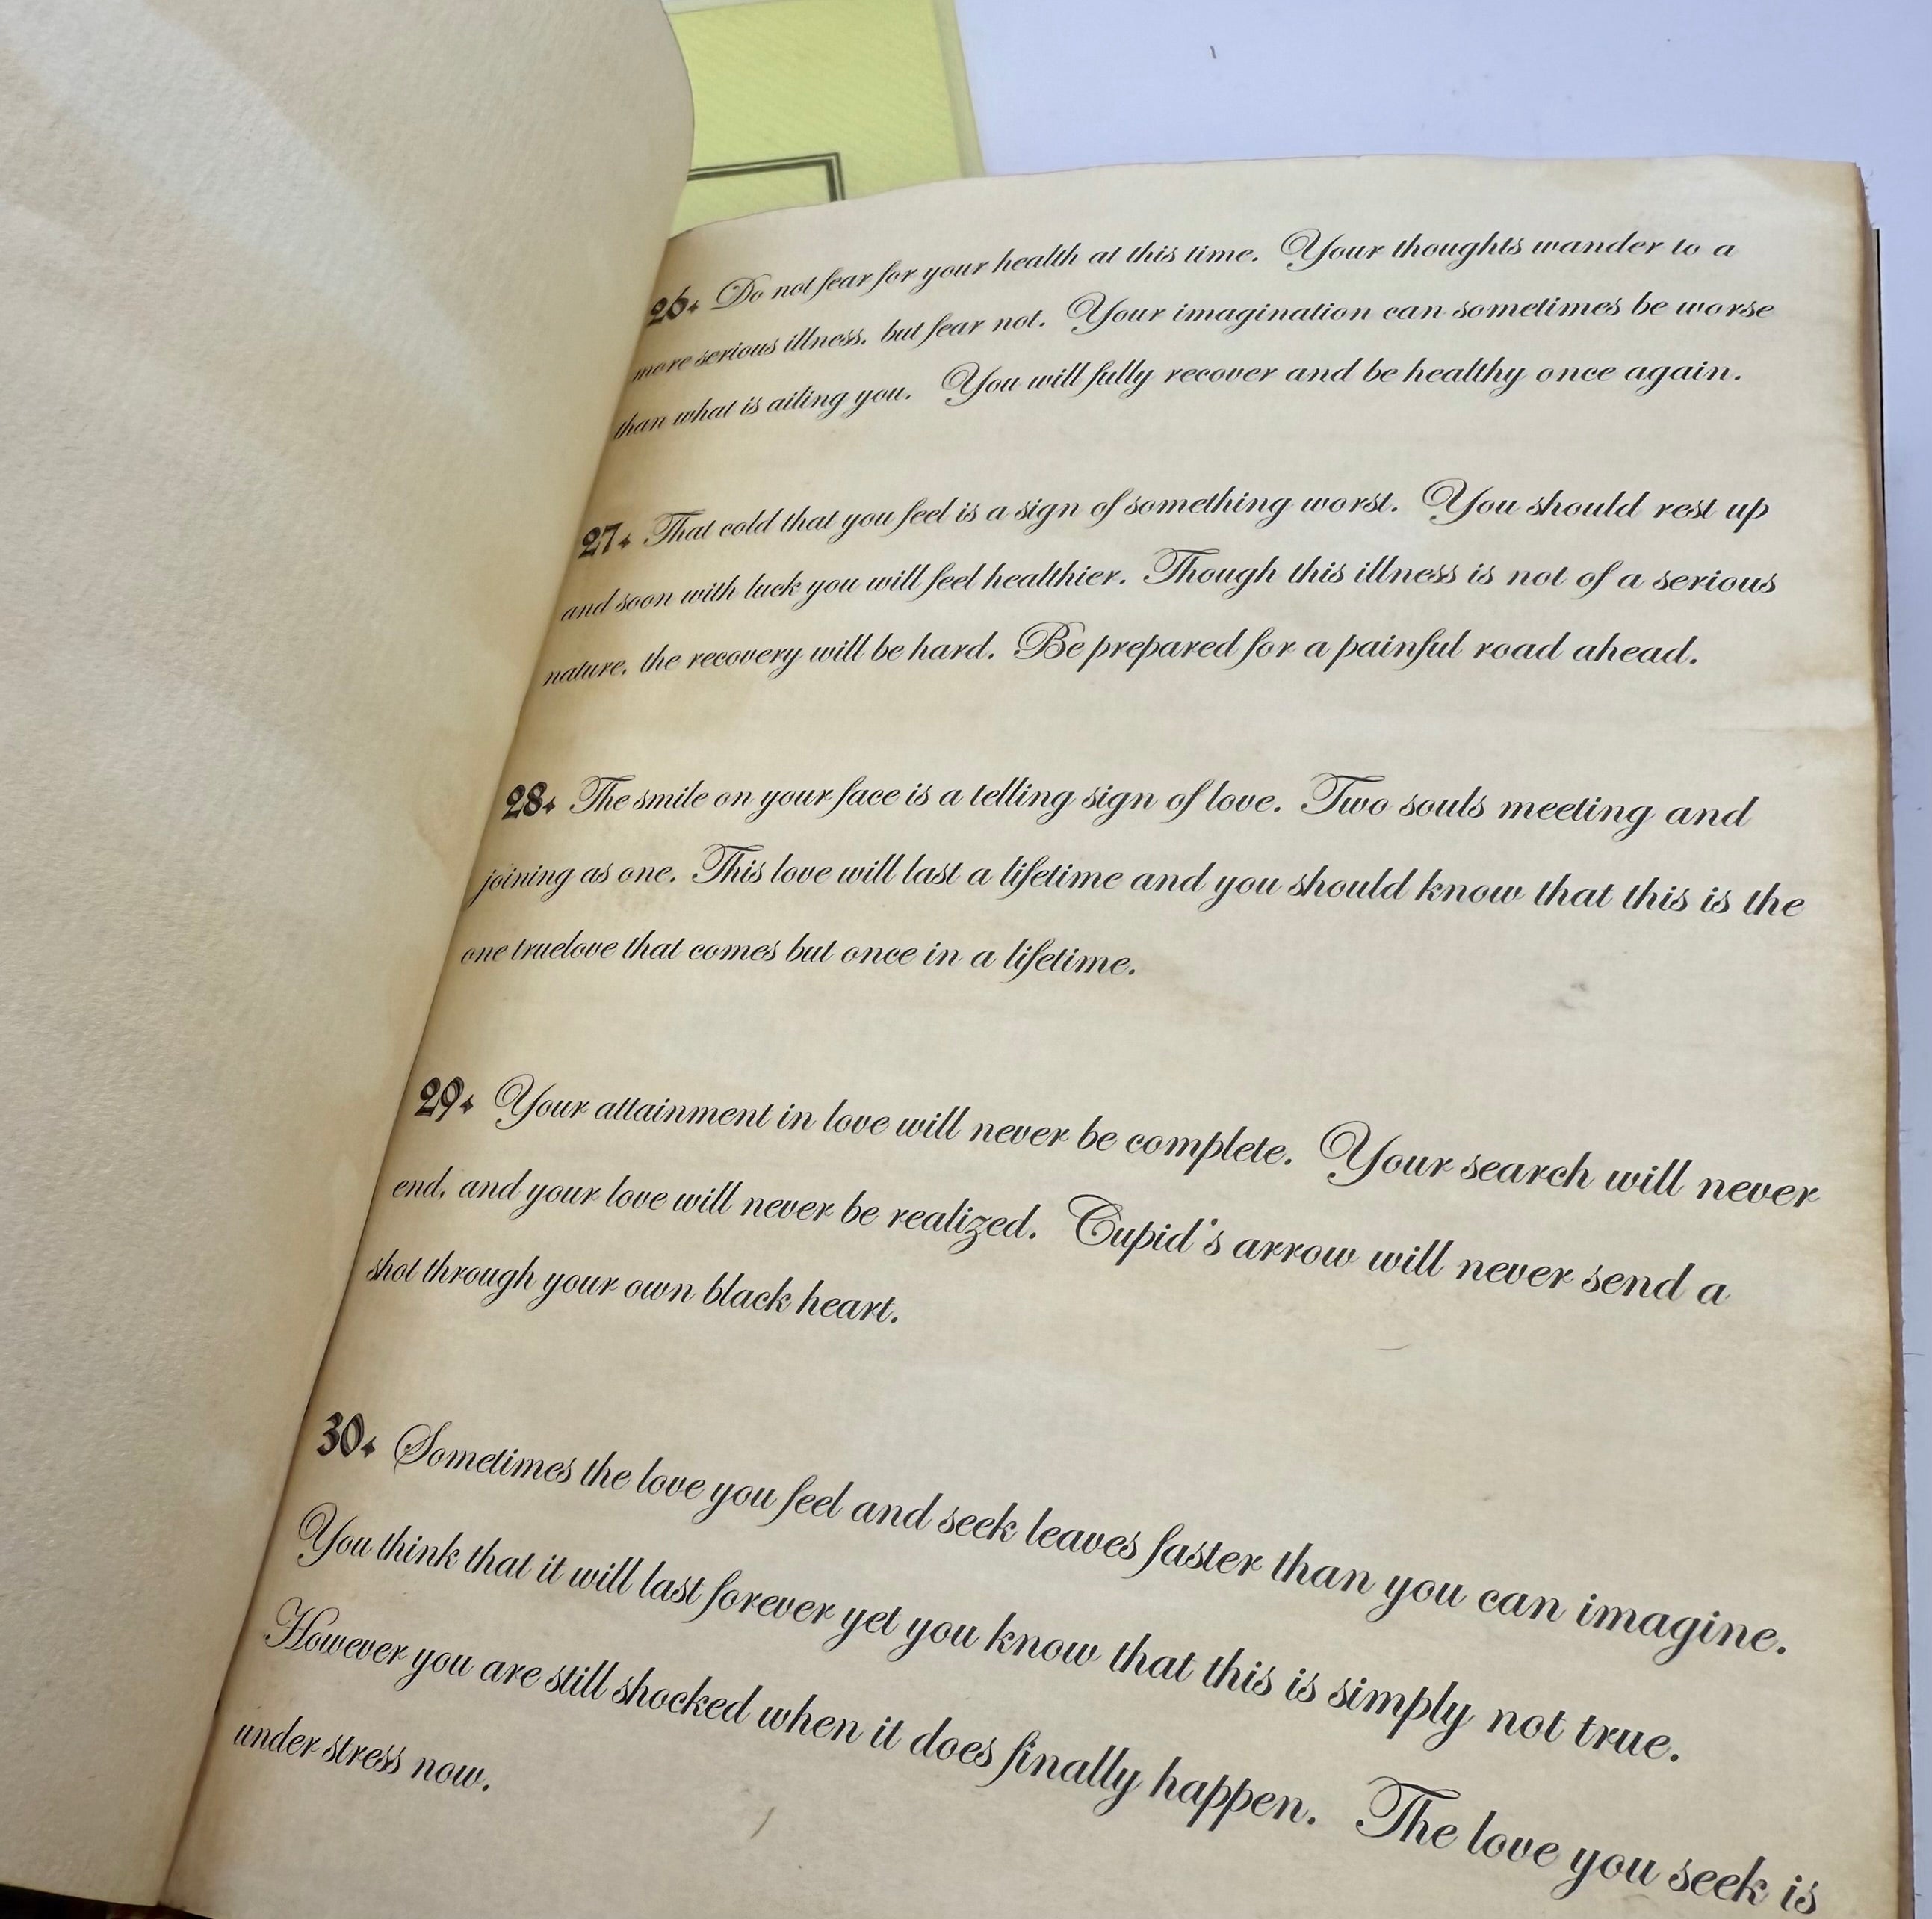 26. Do not fear for your health at this time. Your thoughts wander to a
more serious illness, but fear not. Your imagination can sometimes be worse
than what is ailing you. You will fully recover and be healthy once again.
27. That cold that you feel is a sign of something worst. You should rest up
and soon with luck you will feel healthier. Though this illness is not of a serious
nature, the recovery will be hard. Be prepared for a painful road ahead.
28. The smile on your face is a telling sign of love. Two souls meeting and
joining as one. This love will last a lifetime and you should know that this is the
one truelove that comes but once in a lifetime.
29. Your attainment in love will never be complete. Your search will never
end, and your love will never be realized. Cupid's arrow will never send a
shot through your own black heart.
30. Sometimes the love you feel and seek leaves faster than you can imagine.
You think that it will last forever yet you know that this is simply not true.
However you are still shocked when it does finally happen. The love you seek is
under stress now.